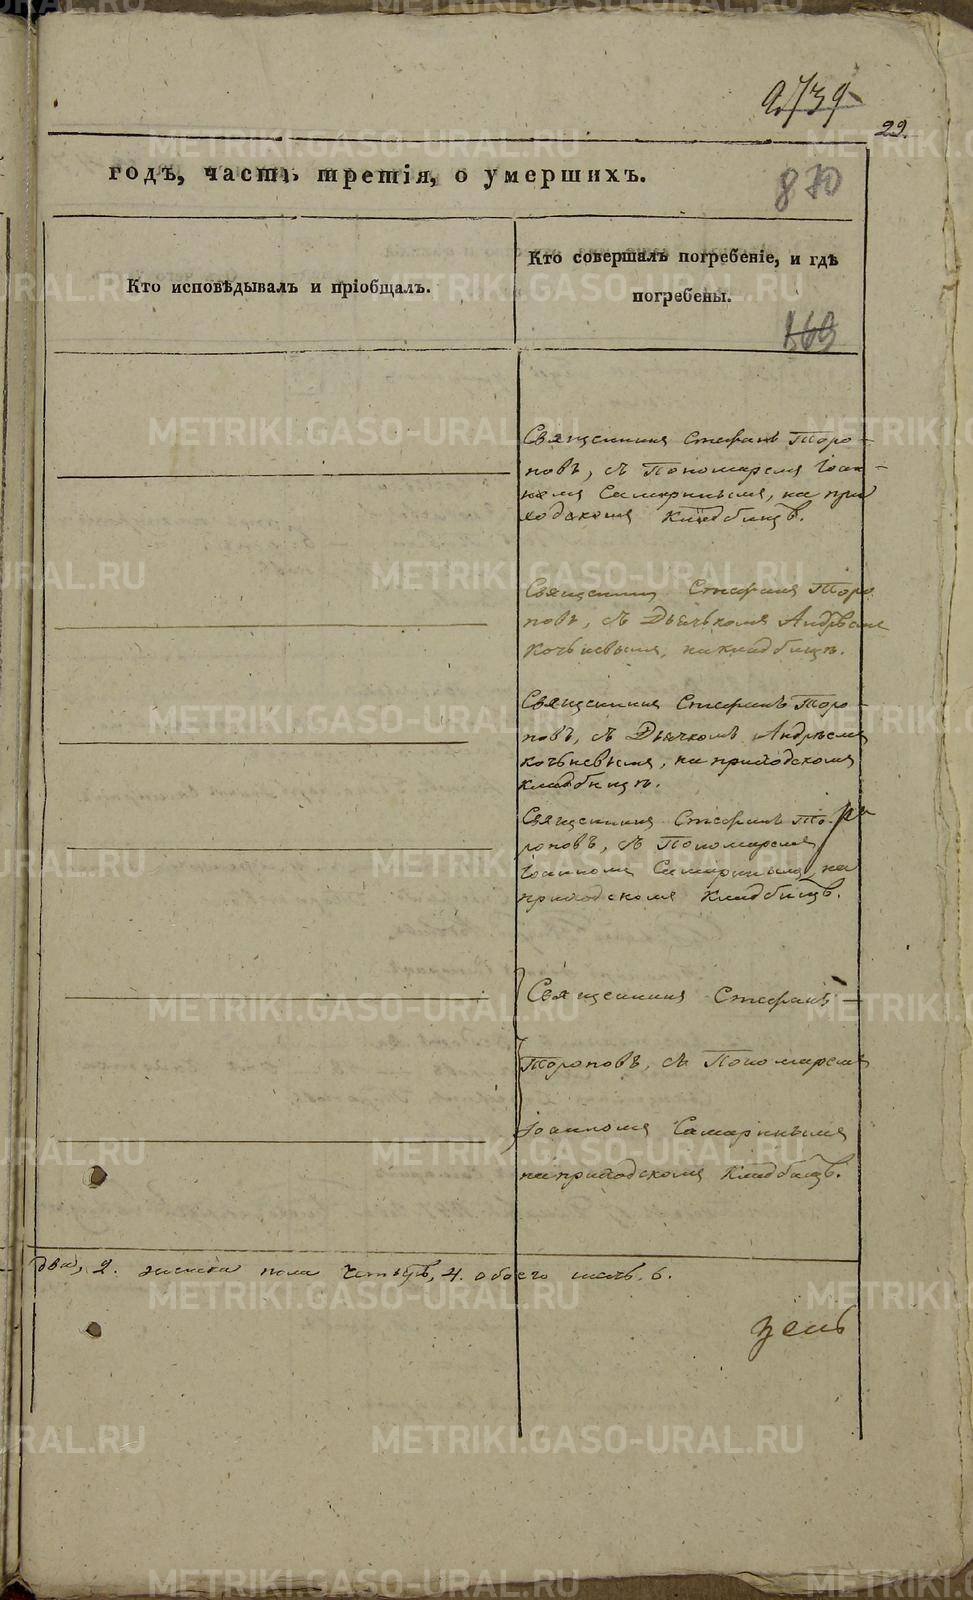 9739
29.
годъ, часть третія, о умершихъ.
870
Кто исповѣдывалъ и пріобщалъ.
Кто совершалъ погребеніе, и гдѣ
погребены.
169
Священникъ Стефанъ Торо-
повъ, съ Пономаремъ Іоан-
номъ Самаринымъ, на при
ходскомъ кладбищѣ.
Священникъ Стефанъ Торо
повъ, съ Дьячкомъ Андрѣемъ
на кладбищѣ.
Священникъ Стефанъ Торо-
повъ, съ Дьячкомъ Андрѣемъ
на приходскомъ
кладбищѣ.
Священникъ Стефанъ То-
роповъ, съ Пономаремъ
Іоанномъ Самаринымъ, на
приходскомъ кладбищѣ.
Священникъ Стефанъ
Тороповъ, съ Пономаремъ
Іоанномъ Самаринымъ
на приходскомъ кладбищѣ.
два, 2. женска пола четыре, 4. обоего шесть. 6.
METRIKI.GASO-URAL.RU